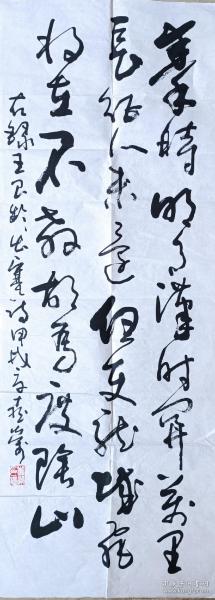 秦時明月漢時関萬里
長征人未還但使龍城飛
将在不教胡馬度陰山
右録王昌齡出塞詩甲戌